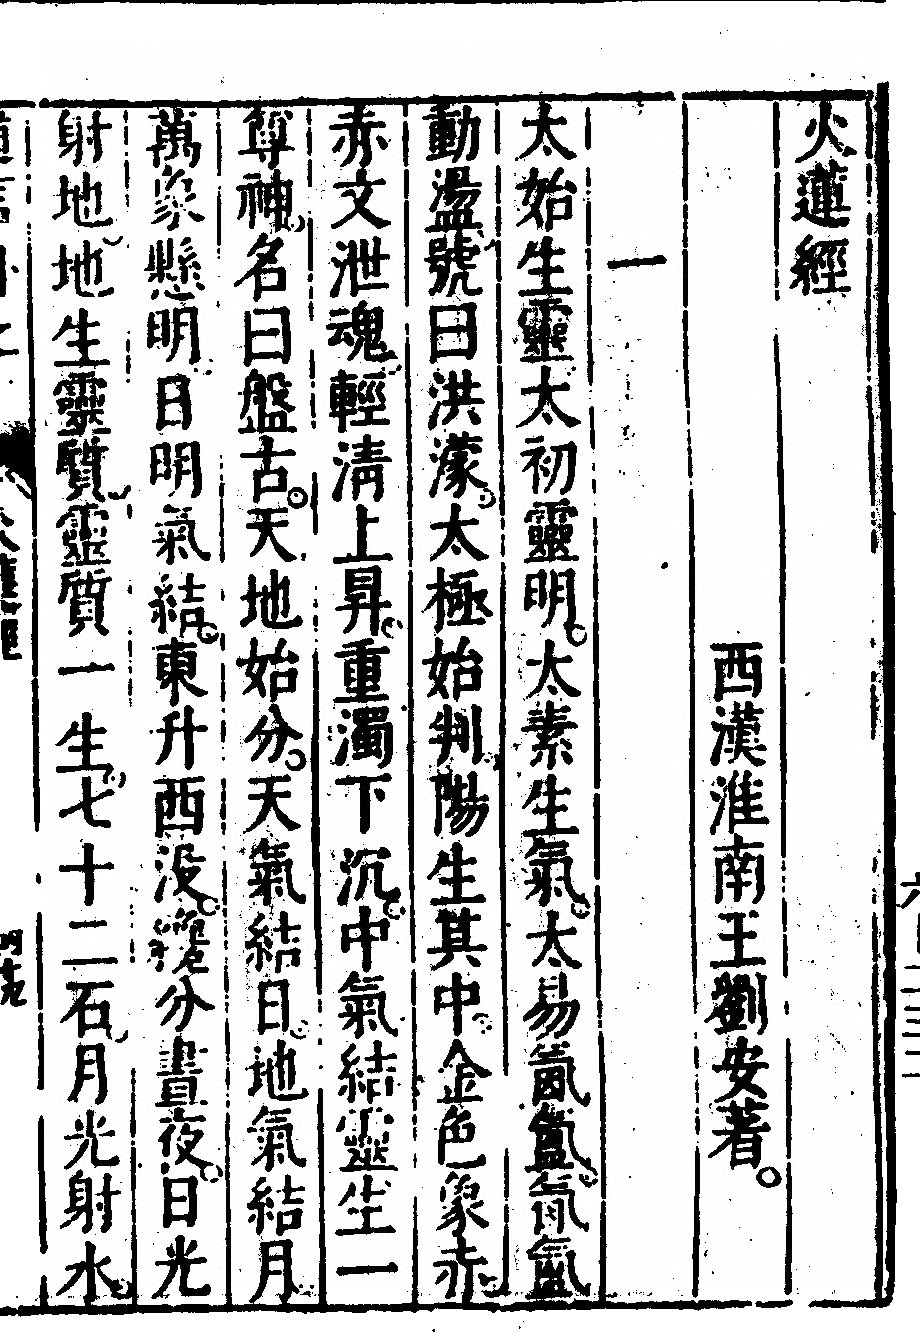 火蓮經
西漢淮南王劉安著
一
太始生靈太初靈明太素生氣太易氤氳氤氳
動盪號曰洪濛太極始判陽生其中金色象赤
赤文泄魂輕清上昇重濁下沉中氣結靈生一
尊神名曰盤古天地始分天氣結日地氣結月
萬象懸明日明氣結東升西没纔分晝夜日光
射地地生靈質靈質一生七十二石月光射水